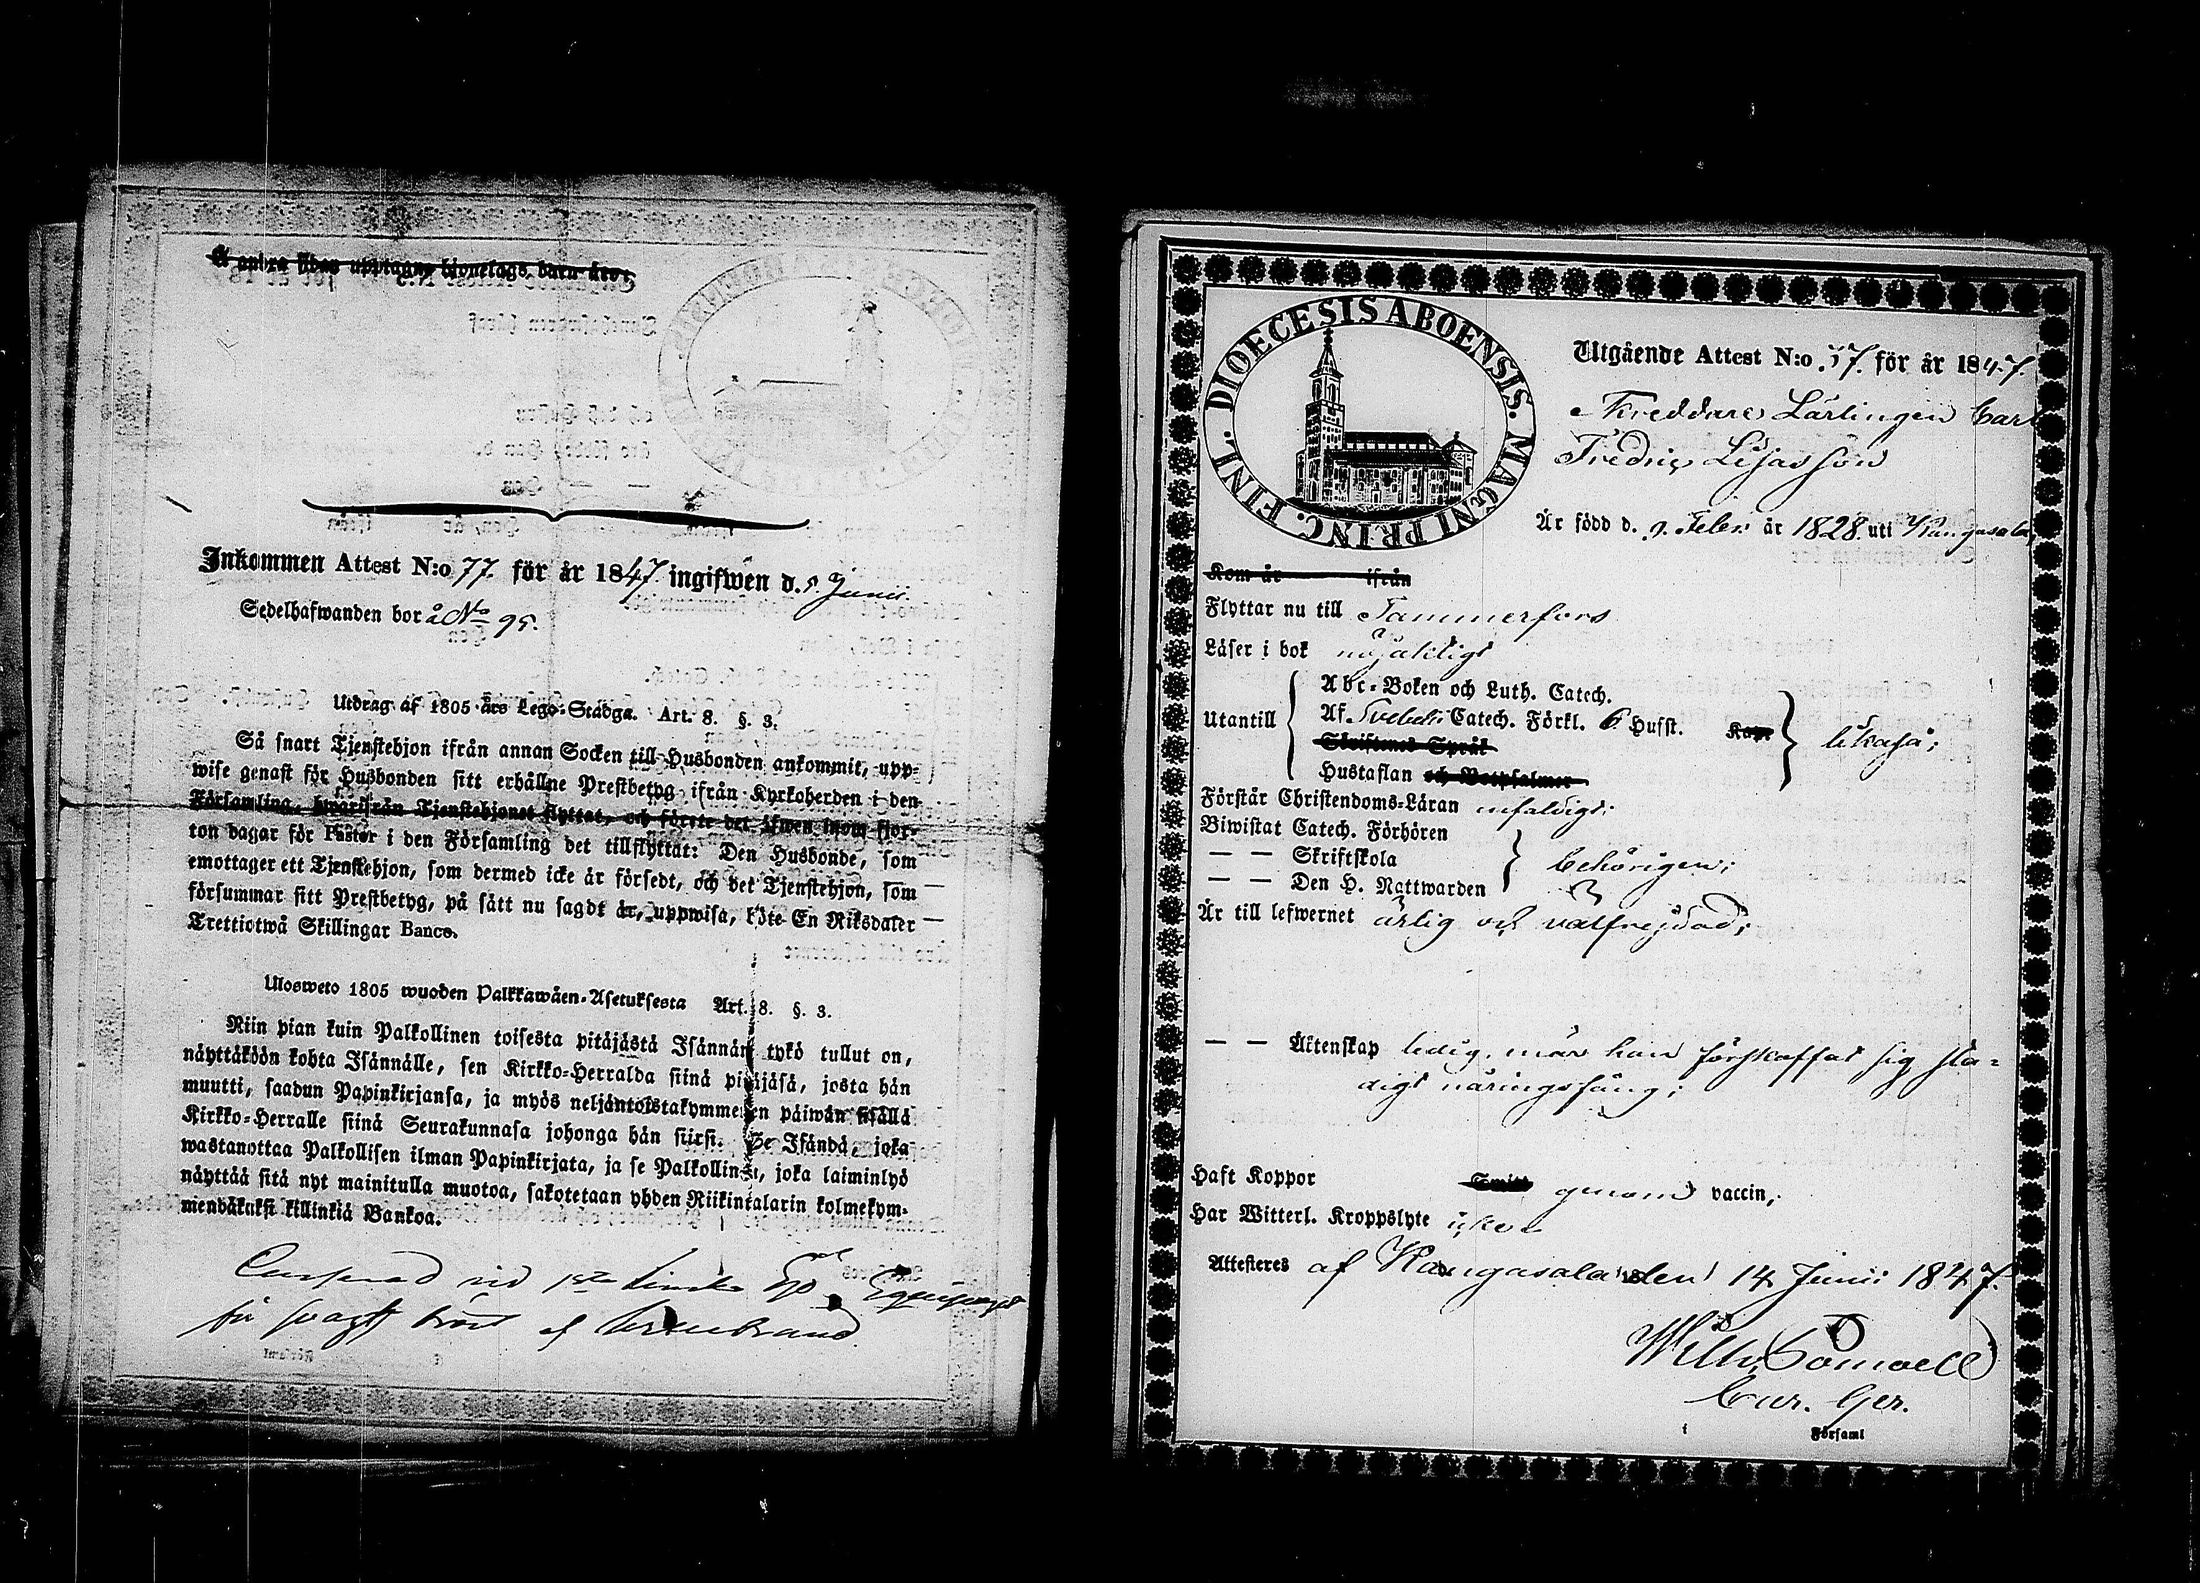 Inkommen Attest N:o 77. för år 1847. ingifwen d. 5. Junii.
Sedelhafwanden bor å No 95.
Utdrag af 1805 års Lego-Stadga. Art. 8. §. 3.
Så snart Tjenstehjon ifrån annan Socken till Husbonden ankommit, upp-
wise genast för Husbonden sitt erhållne Prestbetyg ifrån Kyrkoherden i den
Församling, hwarifrån Tjenstehjonet flyttat, och förete det äfwen inom fjor-
ton dagar för Pastor i den Församling det tillflyttat: Den Husbonde, som
emottager ett Tjenstehjon, som dermed icke är försedt, och det Tjenstehjon, som
försummar sitt Prestbetyg, på sätt nu sagdt är, uppwisa, böte En Riksdaler
Trettiotwå Skillingar Banco.
Ulosweto 1805 wuoden Palkkawäen-Asetuksesta Art. 8. §. 3.
Niin pian kuin Palkollinen toisesta pitäjästä Isännän tykö tullut on,
näyttäköön kohta Isännälle, sen Kirkko-Herralda siinä pitäjäsä, josta hän
muutti, saadun Papinkirjansa, ja myös neljäntoistakymmenen päiwän sisällä
Kirkko-Herralle siinä Seurakunnasa johonga hän siirsi. Se Isändä, joka
wastanottaa Palkollisen ilman Papinkirjata, ja se Palkollinen, joka laiminlyö
näyttää sitä nyt mainitulla muotoa, sakotetaan yhden Riikintalarin kolmekym-
mendäkaksi killinkiä Bankoa.
Casserad vid 1sta Finska
för svagt bröst af
DIOECESIS ABOENSIS. MAGNI PRINC. FINL.
Utgående Attest N:o 57. för år 1847.
Lärlingen Carl
Fredric
Är född d. 9. Febr. år 1828. uti Kangasala
Kom år ifrån
Flyttar nu till Tammerfors
Läser i bok nöjaktigt
Utantill
Abc-Boken och Luth. Catech.
Af Svebelii Catech. Förkl. 6 Hufst. Kap:
Skriftenes Språk
Hustaflan och Botpsalmer
likaså;
Förstår Christendoms-Läran enfaldigt;
Biwistat Catech. Förhören
— — Skriftskola
— — Den H. Nattwarden
behörigen;
Är till lefwernet ärlig och välfrejdad;
— — Äktenskap ledig, när han förskaffat sig sta-
digt näringsfång;
Haft Koppor genom vaccin;
Har Witterl. Kroppslyte icke
Attesteres af Kangasala den 14 Junii 1847.
Wilh.
Cur. Ger.
i Församl